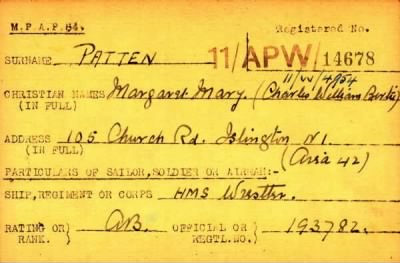 M.P.A.P.64. Registered No.
SURNAME PATTEN 11/APW/ 14678
11/W/4954
CHRISTIAN NAMES Margaret Mary. (Charles William Bertie)
(IN FULL)
ADDRESS 105 Church Rd. Islington N1.
(IN FULL) (Area 42)
PARTICULARS OF SAILOR, SOLDIER OR AIRMAN:-
SHIP, REGIMENT OR CORPS HMS Wrestler.
RATING OR AB. OFFICIAL OR 193782.
RANK. REGTL. NO.)